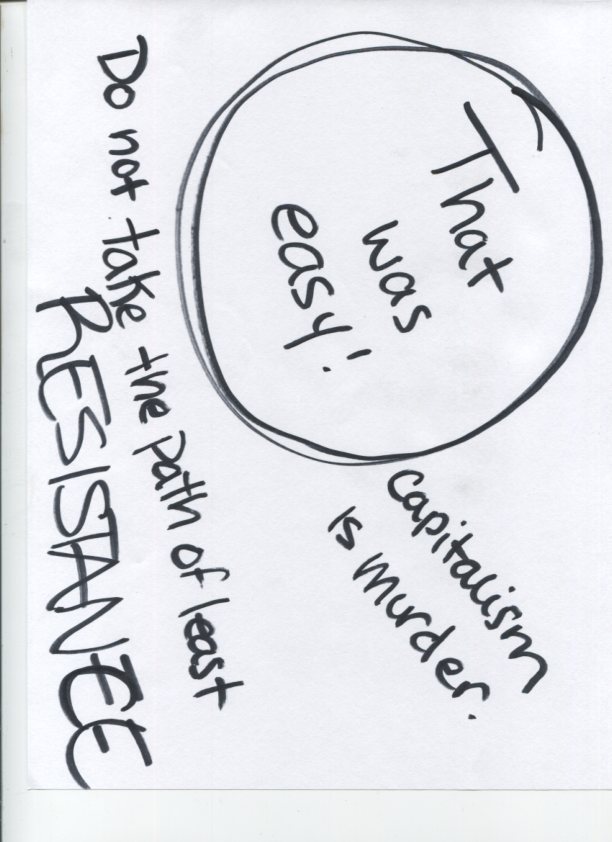 That
was
easy!
Capitalism
is murder.
Do not take the path of least
RESISTANEE